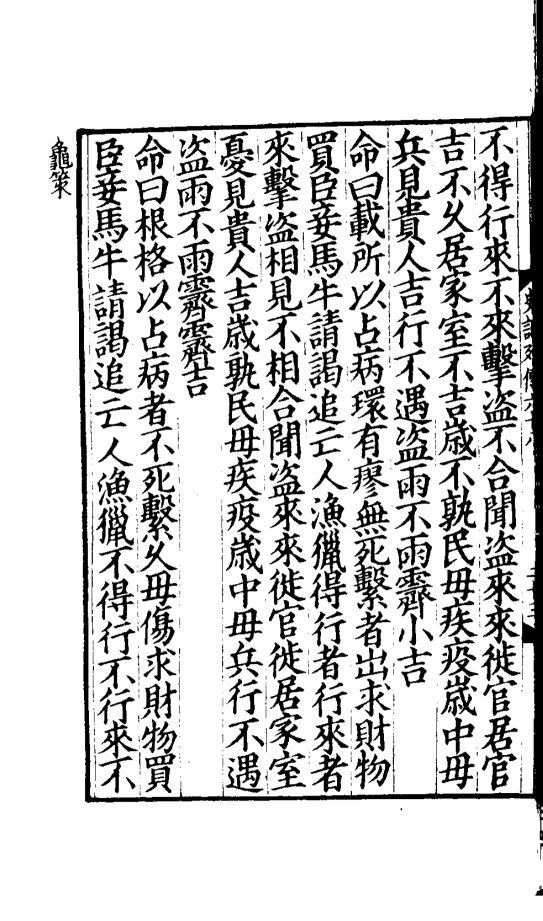 不得行來不來擊盜不合聞盜來來徙官居官
吉不久居家室不吉歲不孰民毋疾疫歲中毋
兵見貴人吉行不遇盜雨不雨霽小吉
命曰載所以占病環有瘳無死繫者出求財物
買臣妾馬牛請謁追亡人漁獵得行者行來者
來擊盜相見不相合聞盜來來徙官徙居家室
憂見貴人吉歲孰民毋疾疫歲中毋兵行不遇
盜雨不雨霽霽吉
命曰根格以占病者不死繫久毋傷求財物買
臣妾馬牛請謁追亡人漁獵不得行不行來不
龜策